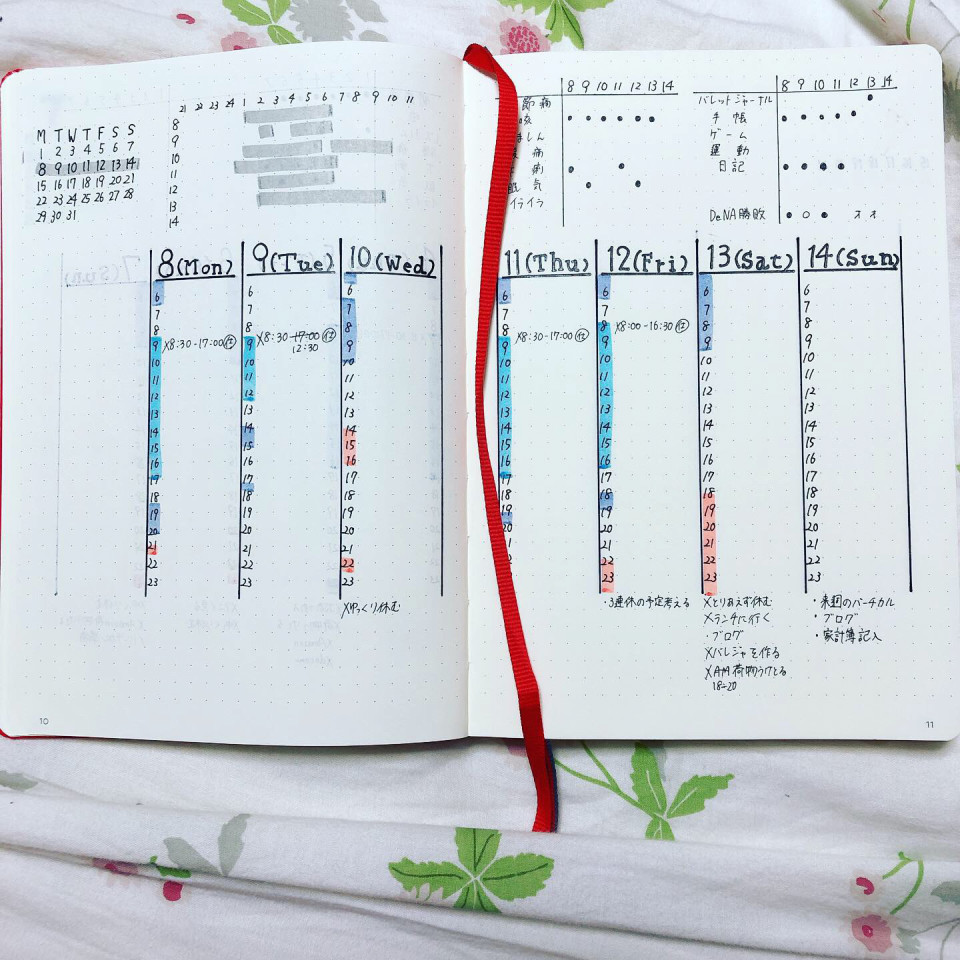 M T W T F S S
1 2 3 4 5 6 7
8 9 10 11 12 13 14
15 16 17 18 19 20 21
22 23 24 25 26 27 28
29 30 31
21 22 23 24 1 2 3 4 5 6 7 8 9 10 11
8
9
10
11
12
13
14
8(Mon)
6
7
8
9 X8:30-17:00 仕
10
11
12
13
14
15
16
17
18
19
20
21
22
23
9(Tue)
6
7
8
9 X8:30-17:00 仕
12:30
10
11
12
13
14
15
17
18
19
20
21
22
23
10(Wed)
6
7
8
9
10
11
12
13
14
15
16
17
18
19
20
21
22
23
Xゆっくり休む
10
8 9 10 11 12 13 14
節痛
咳
ましん
痛
痢
眠気
イライラ
8 9 10 11 12 13 14
バレットジャーナル
手帳
ゲーム
運動
日記
DeNA勝敗
11(Thu)
6
7
8
9 X8:30-17:00 仕
10
11
12
13
14
15
16
17
18
19
20
22
23
12(Fri)
6
7
8 X8:00-16:30 仕
9
10
11
12
13
14
15
16
17
18
19
20
21
22
23
・3連休の予定考える
13(Sat)
6
7
8
9
10
11
12
13
14
15
16
17
18
19
20
21
22
23
Xとりあえず休む
Xランチに行く
・ブログ
Xバレジャを作る
XAM荷物うけとる
18-20
14(Sun)
6
7
8
9
10
11
12
13
14
15
16
17
18
19
20
21
22
23
・来週のバーチカル
・ブログ
・家計簿記入
11